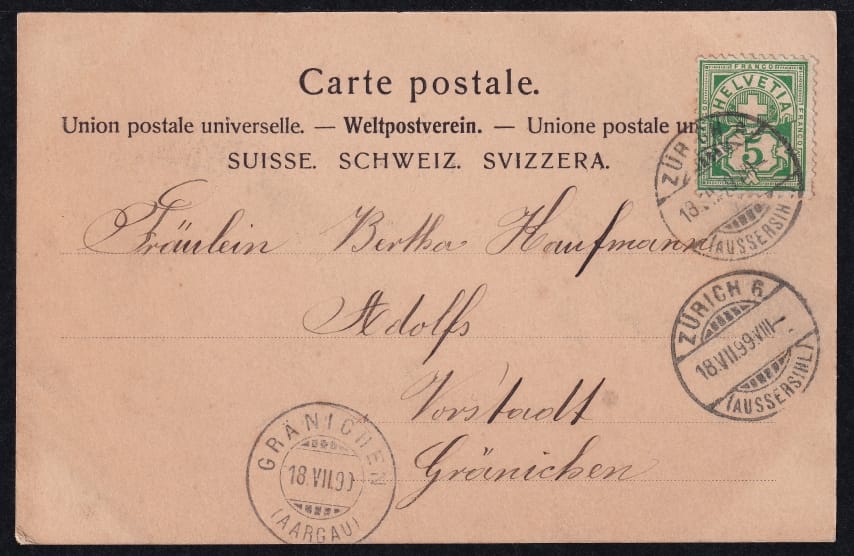 Carte postale.
Union postale universelle. — Weltpostverein. — Unione postale un
SUISSE. SCHWEIZ. SVIZZERA.
FRANCO
FRANCO
FRANCO
HELVETIA
5
ZÜRICH
18.
(AUSSERSIHL
Fräulein Bertha Kaufmann
Adolfs
Vorstadt
Gränichen
ZÜRICH 6
18.VII.99.VIII–
(AUSSERSIHL)
GRÄNICHEN
18.VII.99
(AARGAU)